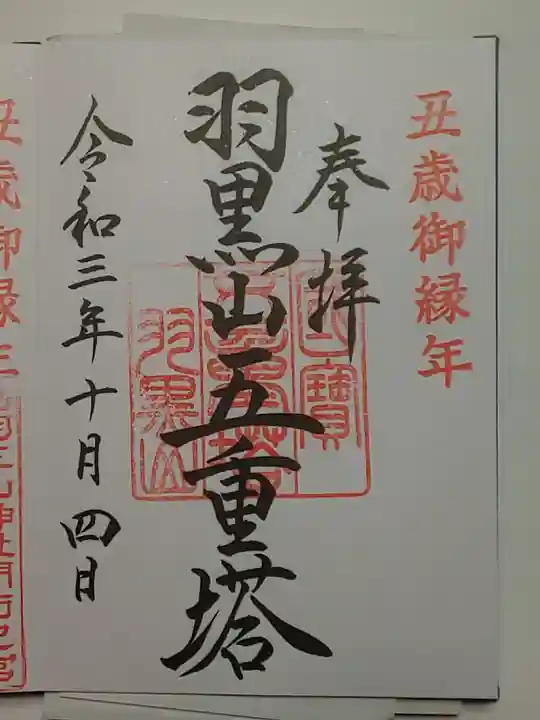 丑歳御縁年
奉拝
羽黒山五重塔
國寶
五重塔
羽黒山
令和三年十月四日
丑歳御縁年